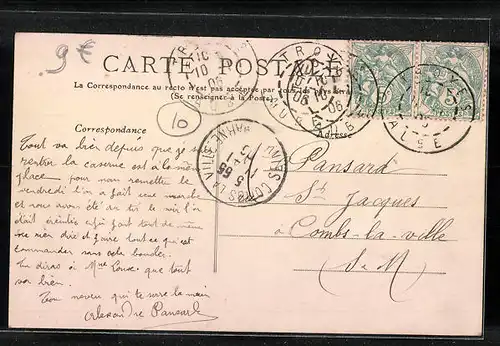 9€
CARTE POSTALE
La Correspondance au recto n'est pas acceptée par tous les pays
(Se renseigner à la Poste)
Correspondance
Adresse
10
TROYES
10
06
TROYES
10
06
AUBE
TROYES
AUBE
COMBS LA VILLE
5
5
Tout va bien depuis que je suis
rentré la caserne est à la même
place pour nous remettre le
vendredi l'on a fait une marche
et nous avons été au tir le soir l'on
était éreintés enfin faut tout de même
se dire et faire tout ce qui est
commander sans cela boucler.
Tu diras à Mme que tout
va bien.
Ton neveu qui te serre la main
Alexandre Pansard
Pansard
St Jacques
à Combs-la-ville
S-M